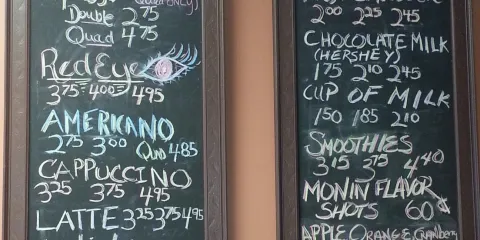 Double 2.75
Quad 4.75
Red Eye
3.75 4.00 4.95
AMERICANO
2.75 3.00 Quad 4.85
CAPPUCCINO
3.25 3.75 4.95
LATTE 3.25 3.75 4.95
2.00 2.25 2.45
CHOCOLATE MILK
(HERSHEY)
1.75 2.10 2.45
CUP OF MILK
1.50 1.85 2.10
SMOOTHIES
3.15 3.75 4.40
MONIN FLAVOR
SHOTS 60¢
APPLE ORANGE Cranberry